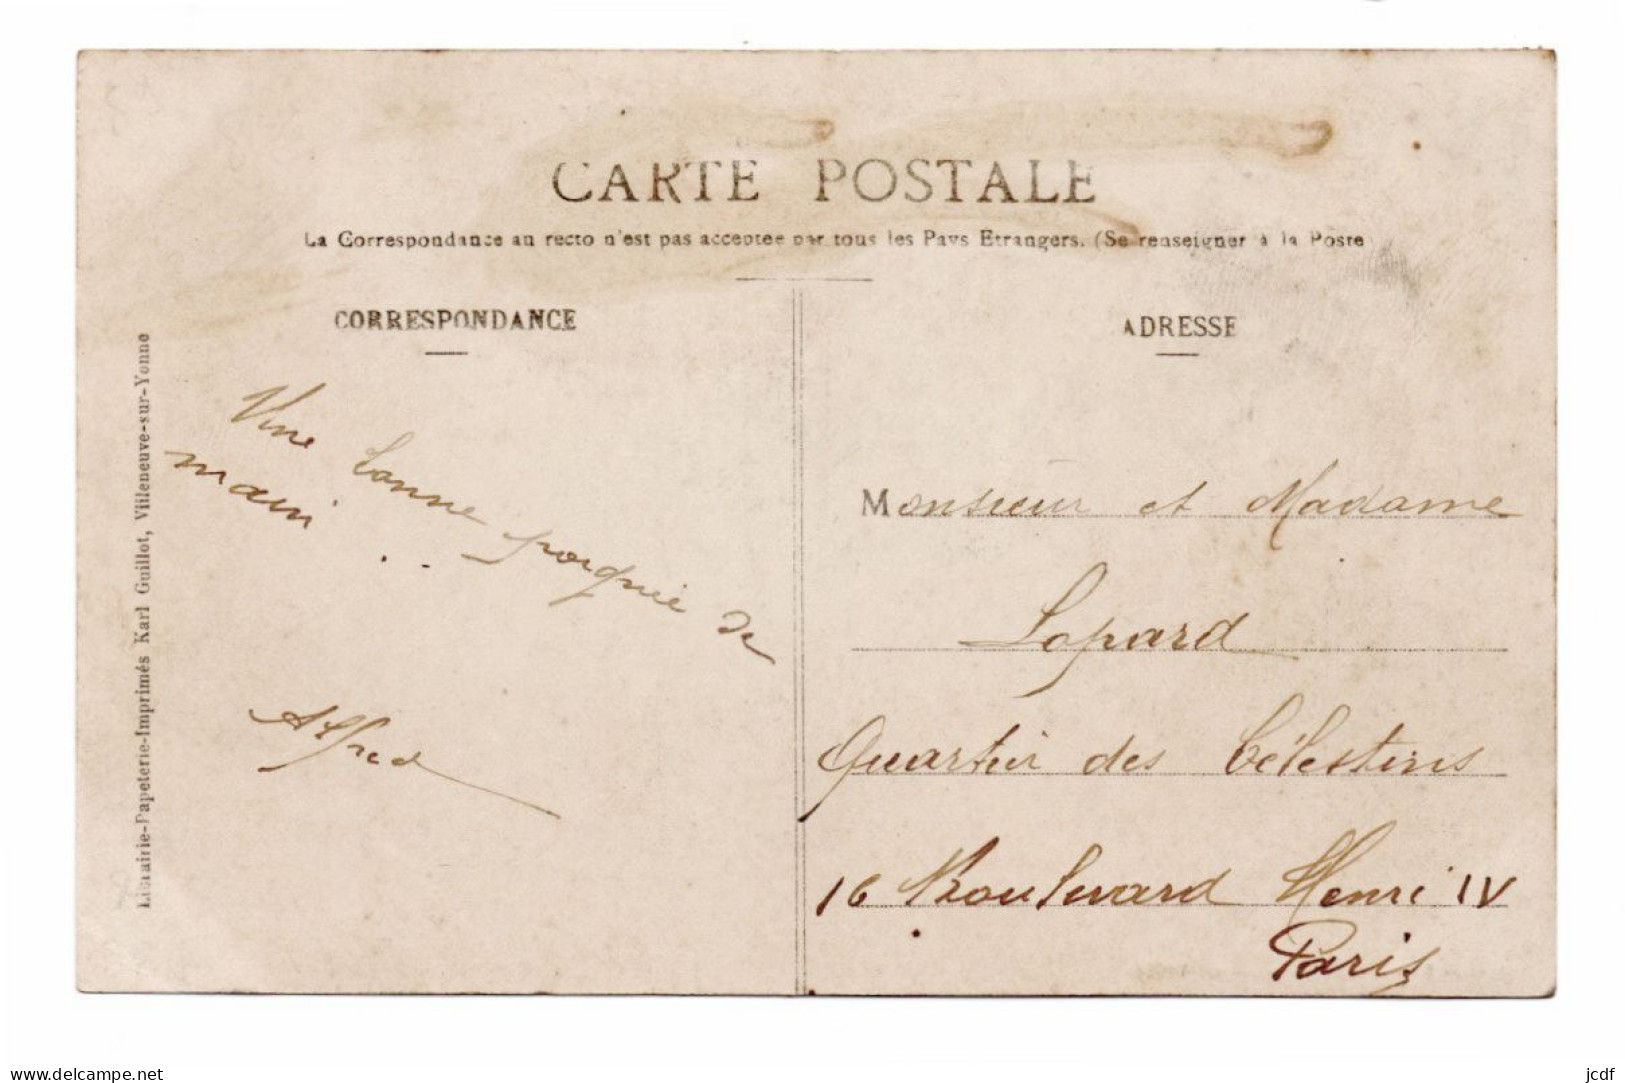 CARTE POSTALE
La Correspondance au recto n'est pas acceptee par tous les Pays Etrangers. (Se renseigner à la Poste
CORRESPONDANCE
ADRESSE
Librairie-Papeterie-Imprimés Karl Guillot, Villeneuve-sur-Yonne
Une bonne poignie de
main . .
Alfred
Monsieur et Madame
Lopard
Quartier des Célestins
16 Boulevard Henri IV
Paris
www.delcampe.net
jcdf